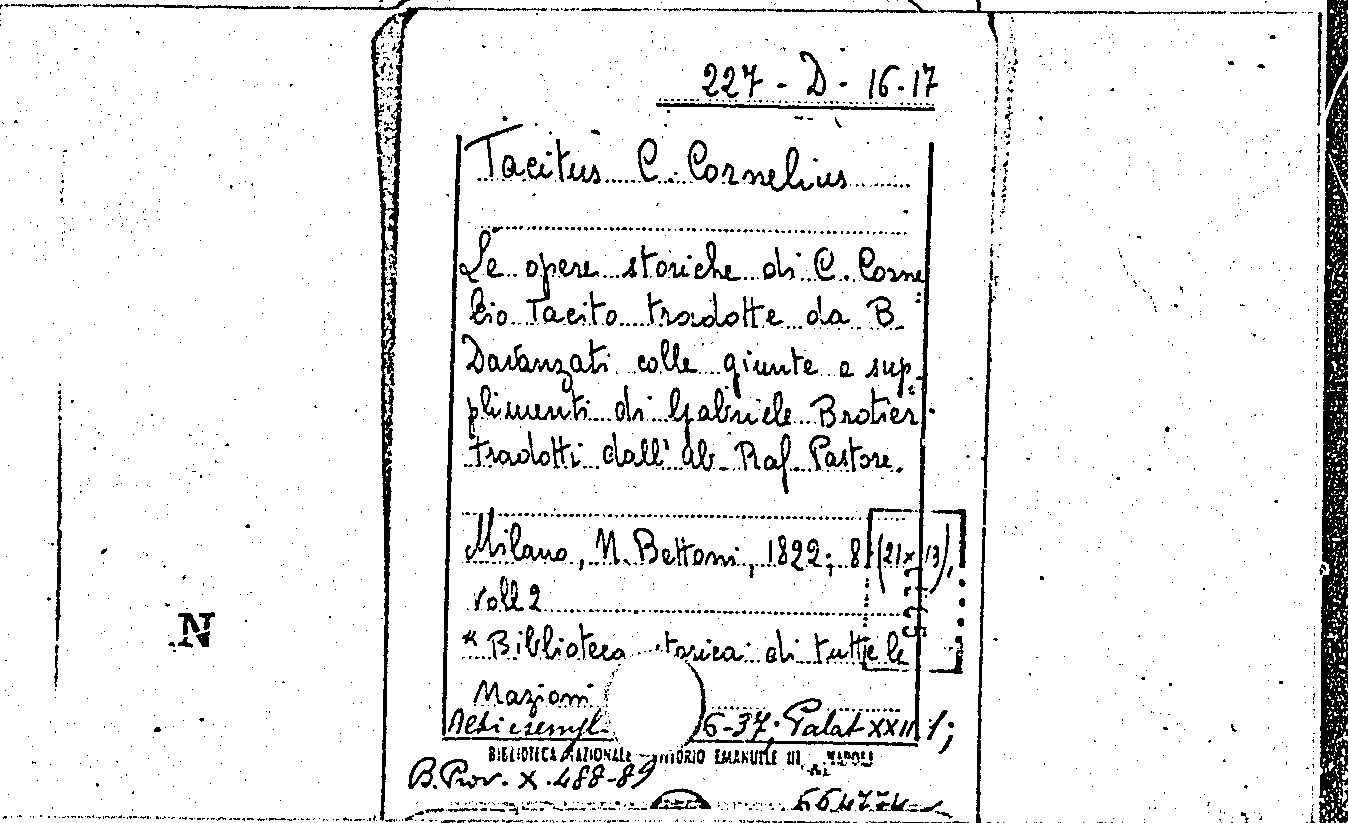 227 - D - 16-17
Tacitus C. Cornelius
Le opere storiche di C. Corne
lio Tacito tradotte da B.
Davanzati colle giunte e sup-
plimenti di Gabriele Brotier
tradotti dall' ab. Raf. Pastore.
Milano, N. Bettoni, 1822; 8 (21x13),
voll 2
* Biblioteca storica di tutte le
Nazioni
Altri esempl. 6-37; Palat XXII 1;
BIBLIOTECA NAZIONALE VITTORIO EMANUELE III NAPOLI
B. Prov. X. 488-89
N